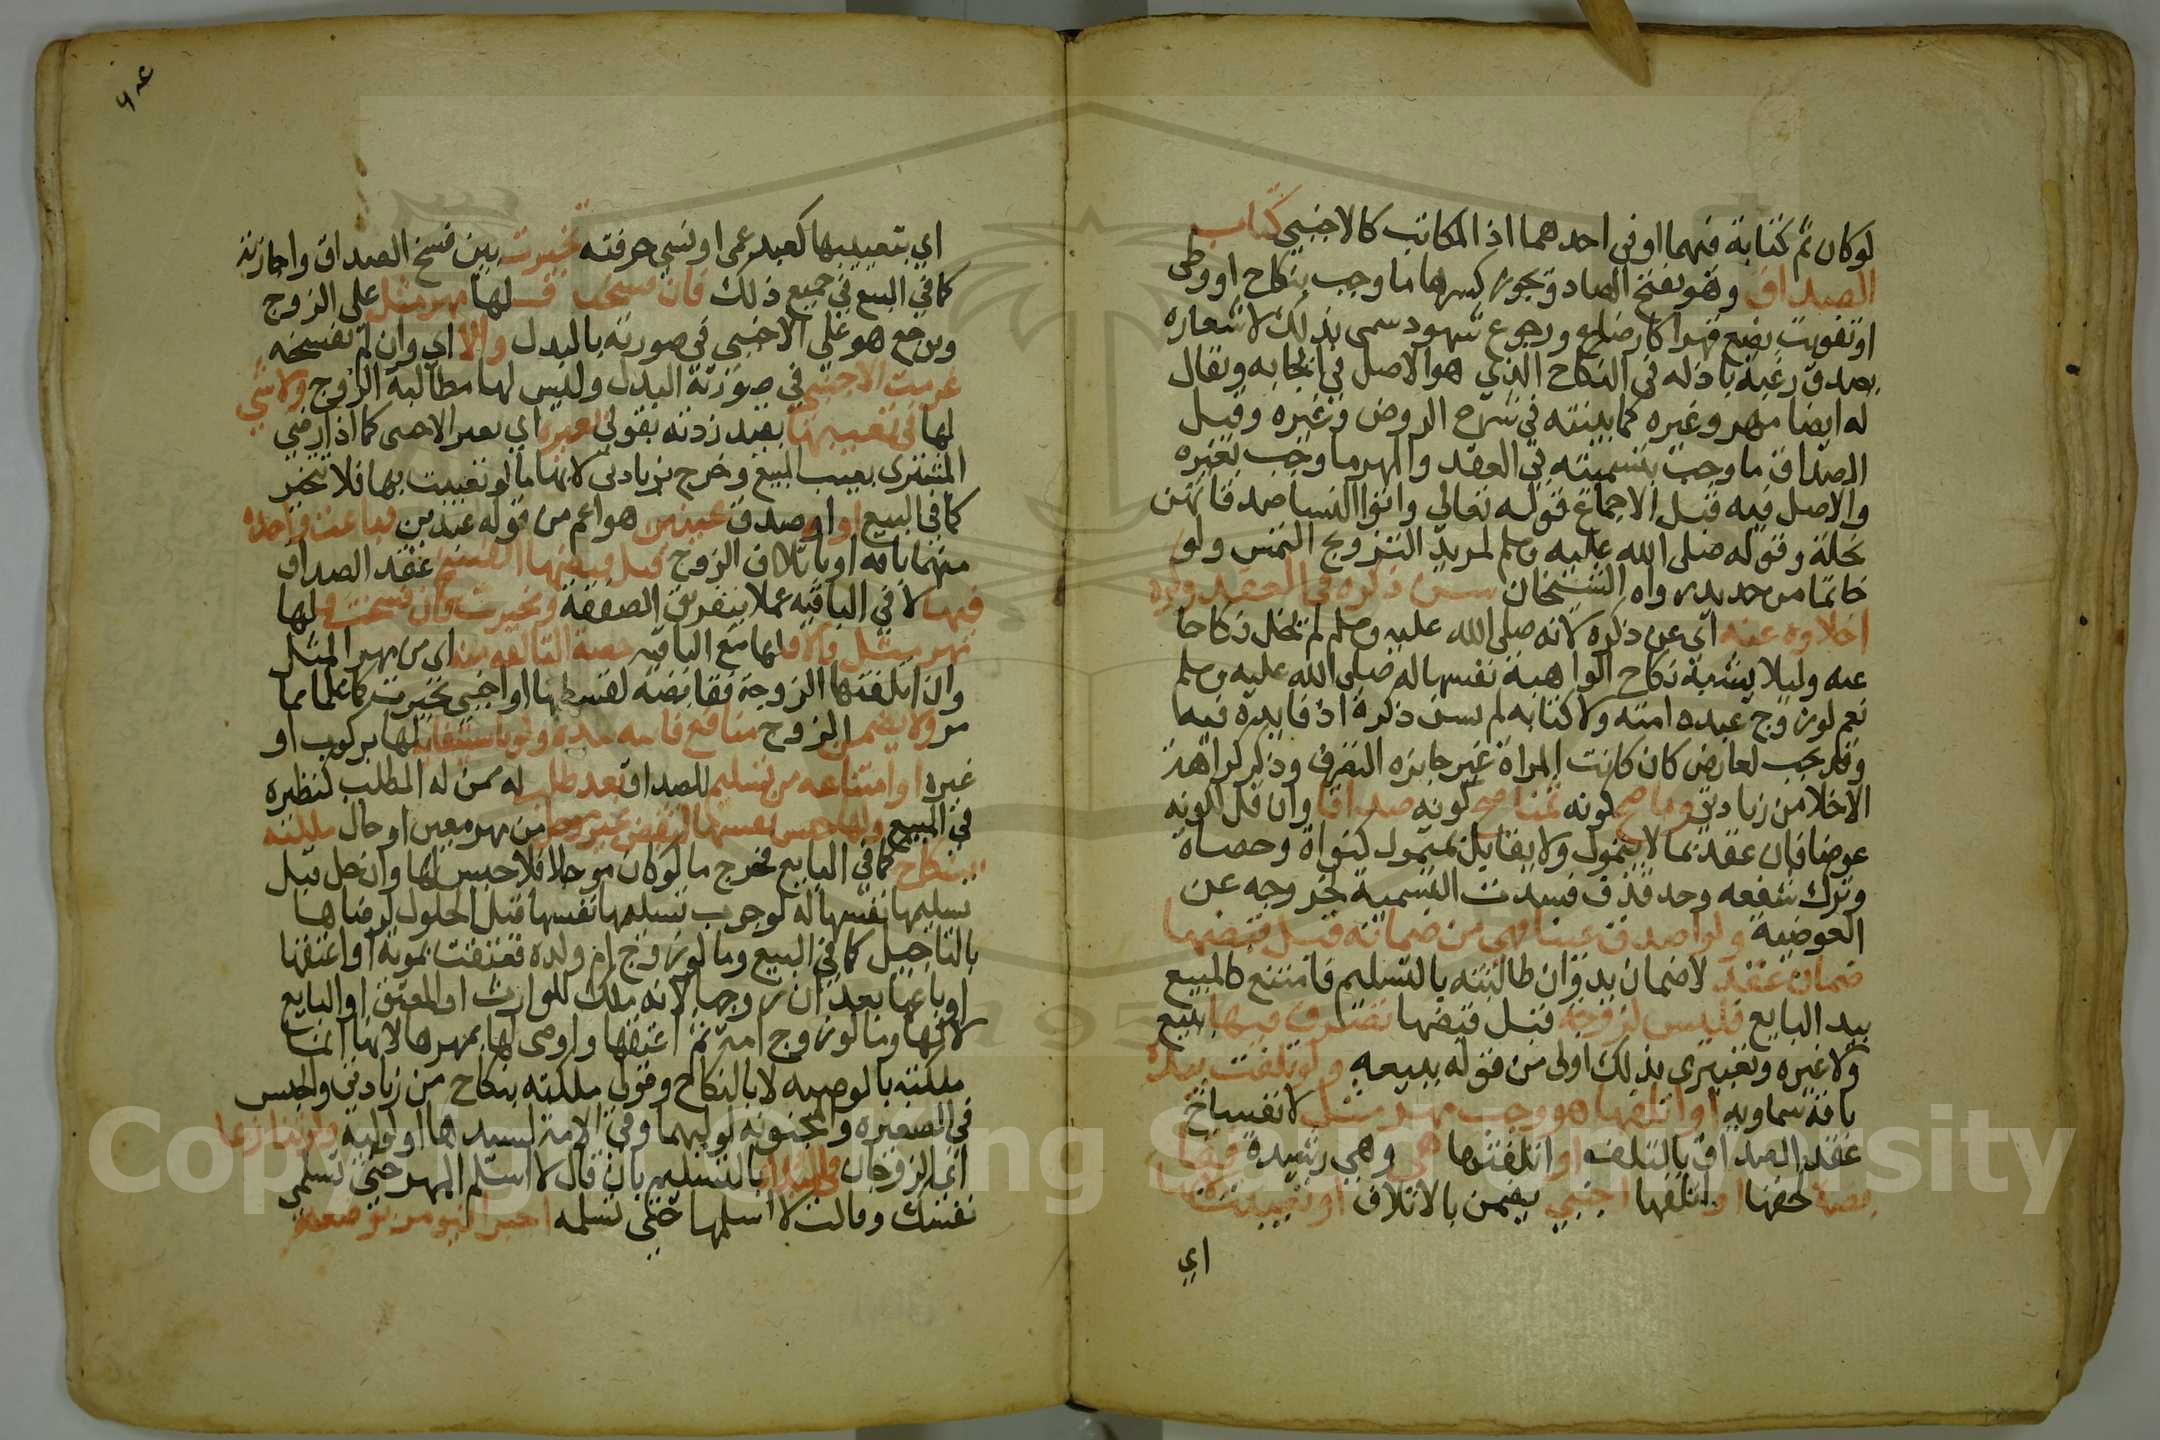 لو كان ثم كتابة فيهما او في احدهما اذ المكاتب كالاجنبي كتاب
الصداق وهو بفتح الصاد ويجوز كسرها ما وجب بنكاح او وطئ
او تفويت بضع قهرا كارضاع ورجوع شهود سمى بذلك لاشعاره
بصدق رغبة باذله في النكاح الذي هو الاصل في ايجابه ويقال
له ايضا مهر وغيره كما بينته في شرح الروض وغيره وقيل
الصداق ما وجب بتسميته في العقد والمهر ما وجب بغيره
والاصل فيه قبل الاجماع قوله تعالى واتوا النسا صدقاتهن
نحلة وقوله صلى الله عليه وسلم لمريد التزويج التمس ولو
خاتما من حديد رواه الشيخان سن ذكره في العقد وكره
اخلاوه عنه اي عن ذكره لانه صلى الله عليه وسلم لم يخل نكاحا
عنه وليلا يشبه نكاح الواهبة نفسها له صلى الله عليه وسلم
نعم لو زوج عبده امته ولا كتابه لم يسن ذكره اذ لا فايدة فيه
وقد يجب لعارض كان كانت المراة غير جايزه التصرف وذكر كراهة
الاخلا من زيادتي وما صح كونه ثمنا صح كونه صداقا وان قل لكونه
عوضا فان عقد بما لا يتمول ولا يقابل بمتمول كنواة وحصاة
وترك شفعه وحد قذف فسدت التسمية لخروجه عن
العوضية ولو اصدق عينا فهي من ضمانه قبل قبضها
ضمان عقد لا ضمان يد وان طالبته بالتسليم فامتنع كالمبيع
بيد البايع فليس لزوجة قبل قبضها تصرف فيها ببيع
ولا غيره وتعبيري بذلك اولى من قوله بيعه ولو تلفت بيده
بافة سماوية او اتلفها هو وجب مهر مثل لانفساخ
عقد الصداق بالتلف او اتلفتها هي وهي رشيدة فقا
بضة لحقها او اتلفها اجنبي يضمن بالاتلاف او تعيبت لا بها
اي
اي بتعييبها كعبد عمى او نسي حرفته تخيرت بين فسخ الصداق واجازته
كما في البيع في جميع ذلك فان فسخت فـ لها مهر مثل على الزوج
ويرجع هو على الاجنبي في صورته بالبدل والا اي وان لم تفسخه
غرمت الاجنبي في صورته البدل وليس لها مطالبة الزوج ولا شي
لها في تعييبها بقيد زدته بقولي لغيره اي بغير الاجنبي كما اذا رضي
المشتري بعيب المبيع وخرج بزيادتي لا بها ما لو تعيبت بها فلا تتخير
كما في البيع او اصدق عينين هو اعم من قوله عبدين فتلفت واحدة
منهما بافة او باتلاف الزوج قبل قبضها انفسخ عقد الصداق
فيها لا في الباقية عملا بتفريق الصفقة وتخيرت فان فسخت فـ لها
مهر مثل والا فلها مع الباقية حصة التالفة منه اي من مهر المثل
وان اتلفتها الزوجة فقابضة لقسطها او اجنبي تخيرت كما علم مما
مر ولا يضمن الزوج منافع فايته بيده ولو باستيفايه لها بركوب او
غيره او امتناعه من تسليم للصداق بعد طلب له ممن له المطلب كنظيره
في المبيع ولها حبس نفسها لتقبض غير موجل من مهر معين او حال ملكته
بنكاح كما في البايع فخرج ما لو كان موجلا فلا حبس لها وان حل قبل
تسليمها نفسها له لوجوب تسليمها نفسها قبل الحلول لرضاها
بالتاجيل كما في البيع وما لو زوج ام ولده فعتقت بموته او اعتقها
او باعها بعد ان زوجها لانه ملك للوارث او المعتق او البايع
لا لها وما لو زوج امته ثم اعتقها واوصى لها بمهرها لانها انما
ملكته بالوصية لا بالنكاح وقولي ملكته بنكاح من زيادتي والحبس
في الصغيره والمجنونه لوليهما وفي الامة لسيدها او لوليه ولو تنازعا
اي الزوجان في البداة بالتسليم بان قال لا اسلم المهر حتى تسلمي
نفسك وقالت لا اسلمها حتى تسلمه اجبرا فيومر بوضعه